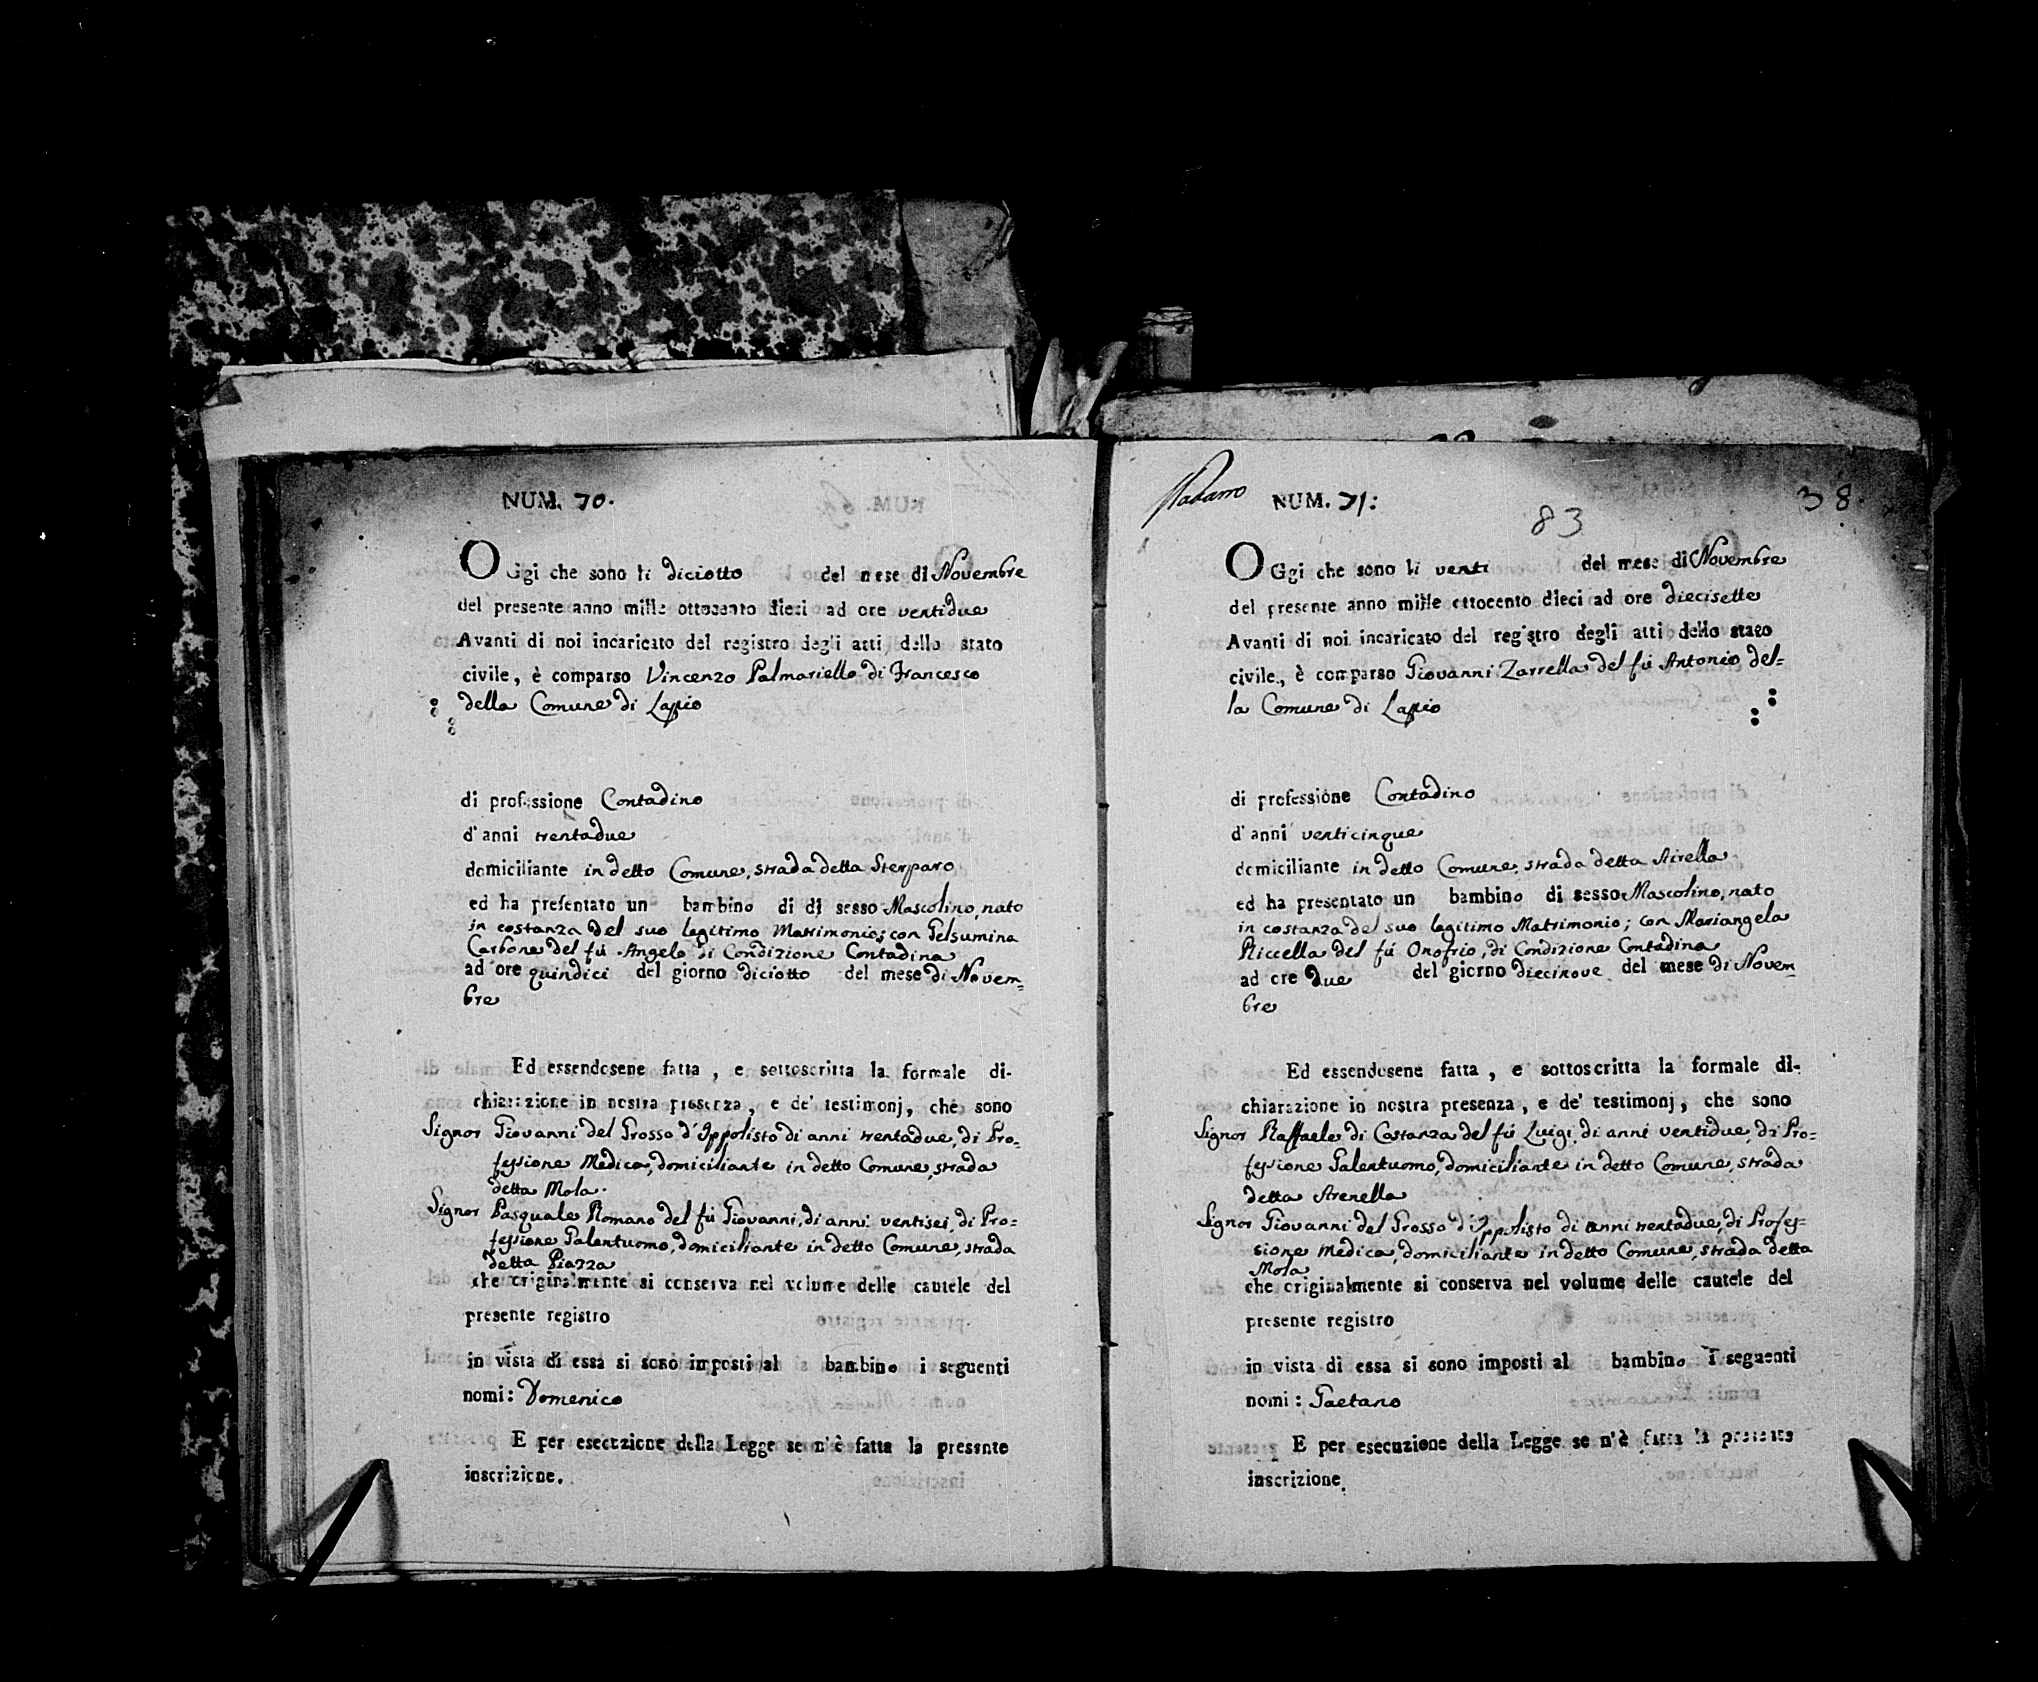 NUM. 70.
OGgi che sono li diciotto del mese di Novembre
del presente anno mille ottocento dieci ad ore ventidue
Avanti di noi incaricato del registro degli atti dello stato
civile, è comparso Vincenzo Palmariello di Francesco
della Comune di Lapio
di professione Contadino
d'anni trentadue
domiciliante in detto Comune, strada detta Sterparo
ed ha presentato un bambino di di sesso Mascolino, nato
in costanza del suo legitimo Matrimonio; con Gelsumina
Carbone del fú Angelo di Condizione Contadina
ad ore quindici del giorno diciotto del mese di Novem=
bre
Ed essendosene fatta, e sottoscritta la formale di-
chiarazione in nostra presenza, e de' testimonj, che sono
Signor Giovanni del Grosso d'Ippolisto di anni trentadue, di Pro=
fessione Medico, domiciliante in detto Comune, strada
detta Mola.
Signor Pasquale Romano del fú Giovanni, di anni ventisei, di Pro=
fessione Galentuomo, domiciliante in detto Comune, strada
detta Piazza
che originalmente si conserva nel volume delle cautele del
presente registro
in vista di essa si sono imposti al bambino i seguenti
nomi: Domenico
E per esecuzione della Legge se n'è fatta la presente
inscrizione.
NUM. 71:
83
38
OGgi che sono li venti del mese di Novembre
del presente anno mille ottocento dieci ad ore diecisette
Avanti di noi incaricato del registro degli atti dello stato
civile, è comparso Giovanni Zarrella del fú Antonio del=
la Comune di Lapio
di professione Contadino
d'anni venticinque
domiciliante in detto Comune, strada detta Airella
ed ha presentato un bambino di sesso Mascolino, nato
in costanza del suo legitimo Matrimonio; con Mariangela
Riccella del fú Onofrio, di Condizione Contadina
ad ore due del giorno diecinove del mese di Novem=
bre
Ed essendosene fatta, e sottoscritta la formale di-
chiarazione in nostra presenza, e de' testimonj, che sono
Signor Raffaele di Costanza del fú Luigi, di anni ventidue, di Pro=
fessione Galentuomo, domiciliante in detto Comune, strada
detta Arenella
Signor Giovanni del Grosso d'Ippolisto di anni trentadue, di Profes=
sione Medico, domiciliante in detto Comune, strada detta
Mola
che originalmente si conserva nel volume delle cautele del
presente registro
in vista di essa si sono imposti al bambino i seguenti
nomi: Gaetano
E per esecuzione della Legge se n'è fatta la presente
inscrizione.